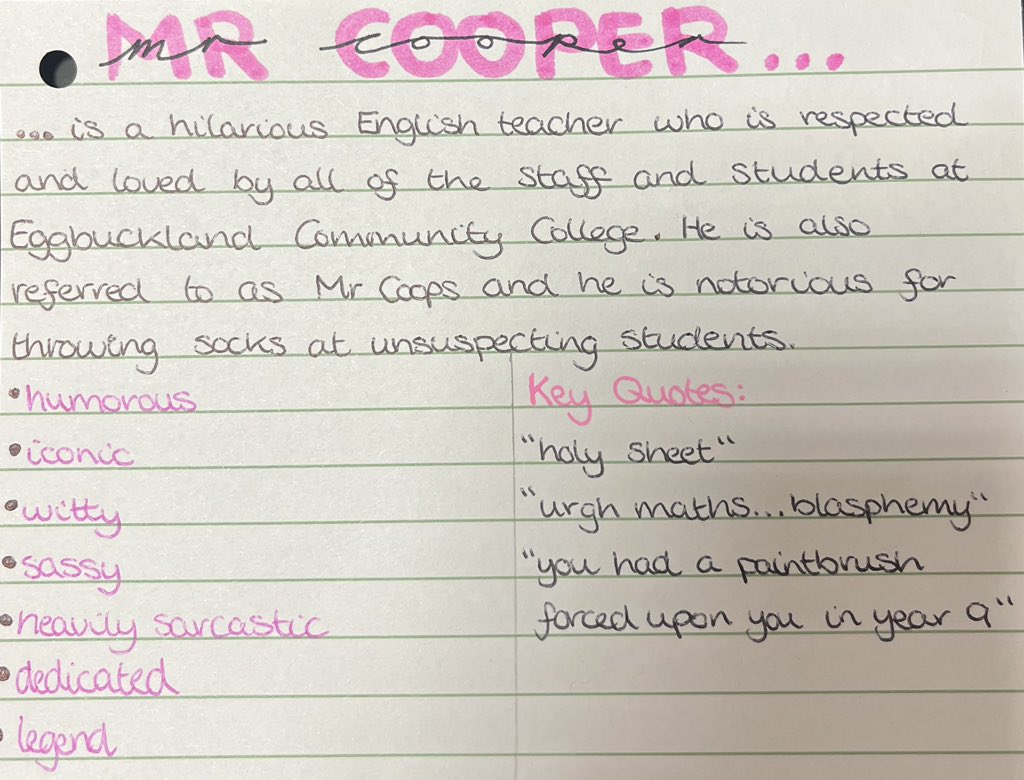 MR COOPER...
mr cooper
... is a hilarious English teacher who is respected
and loved by all of the staff and students at
Eggbuckland Community College. He is also
referred to as Mr Coops and he is notorious for
throwing socks at unsuspecting students.
•humorous
•iconic
•witty
•sassy
•heavily sarcastic
•dedicated
•legend
Key Quotes:
"holy sheet"
"urgh maths...blasphemy"
"you had a paintbrush
forced upon you in year 9"